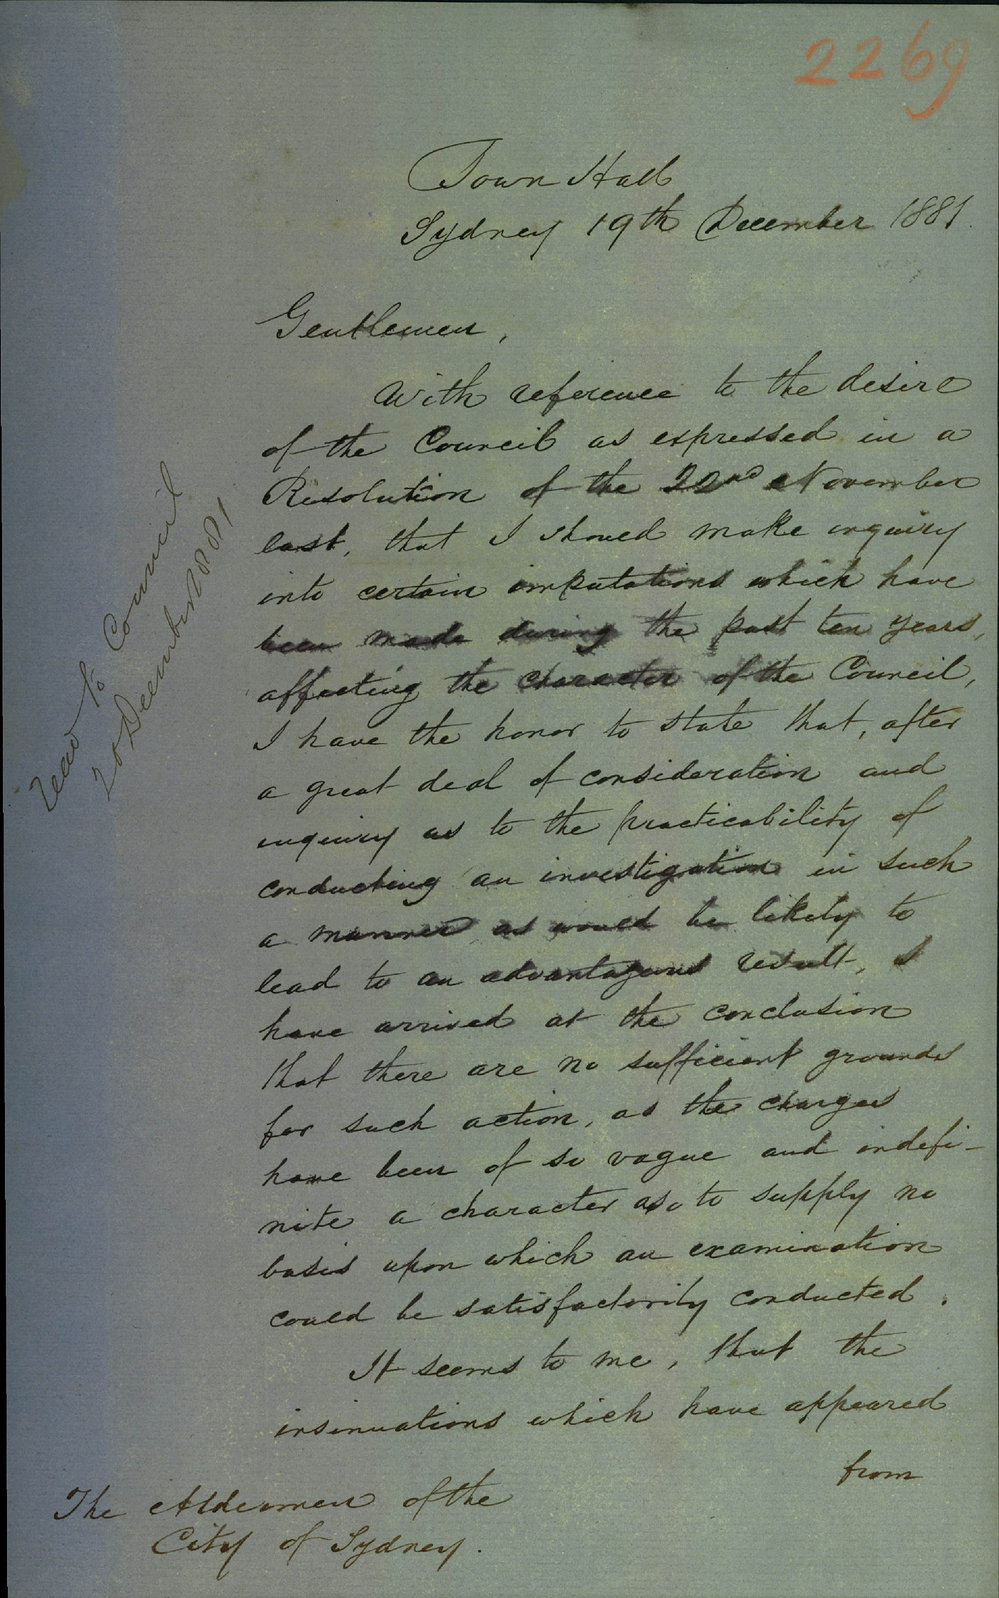 2269
Town Hall
Sydney 19th December 1881.
Gentlemen,
With reference to the desire
of the Council as expressed in a
Resolution of the 22nd November
last, that I should make inquiry
into certain imputations which have
been made during the past ten years,
affecting the character of the Council,
I have the honor to state that, after
a great deal of consideration and
inquiry as to the practicability of
conducting an investigation in such
a manner as would be likely to
lead to an advantageous result, I
have arrived at the conclusion
that there are no sufficient grounds
for such action, as the charges
have been of so vague and indefi-
nite a character as to supply no
basis upon which an examination
could be satisfactorily conducted.
It seems to me, that the
insinuations which have appeared
from
The Aldermen of the
City of Sydney.
Read to Council
20 December 1881